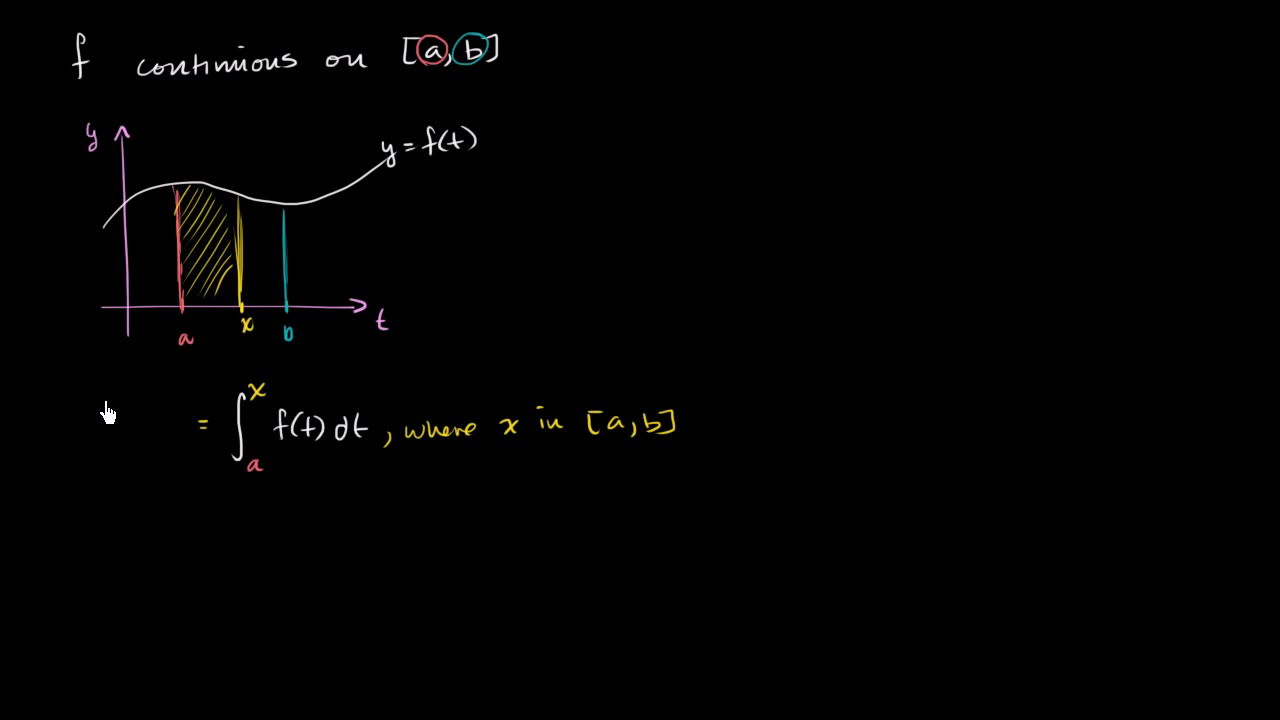 f continuous on [a, b]
y
y = f(t)
a
x
b
t
= ∫ₐˣ f(t) dt, where x in [a, b]